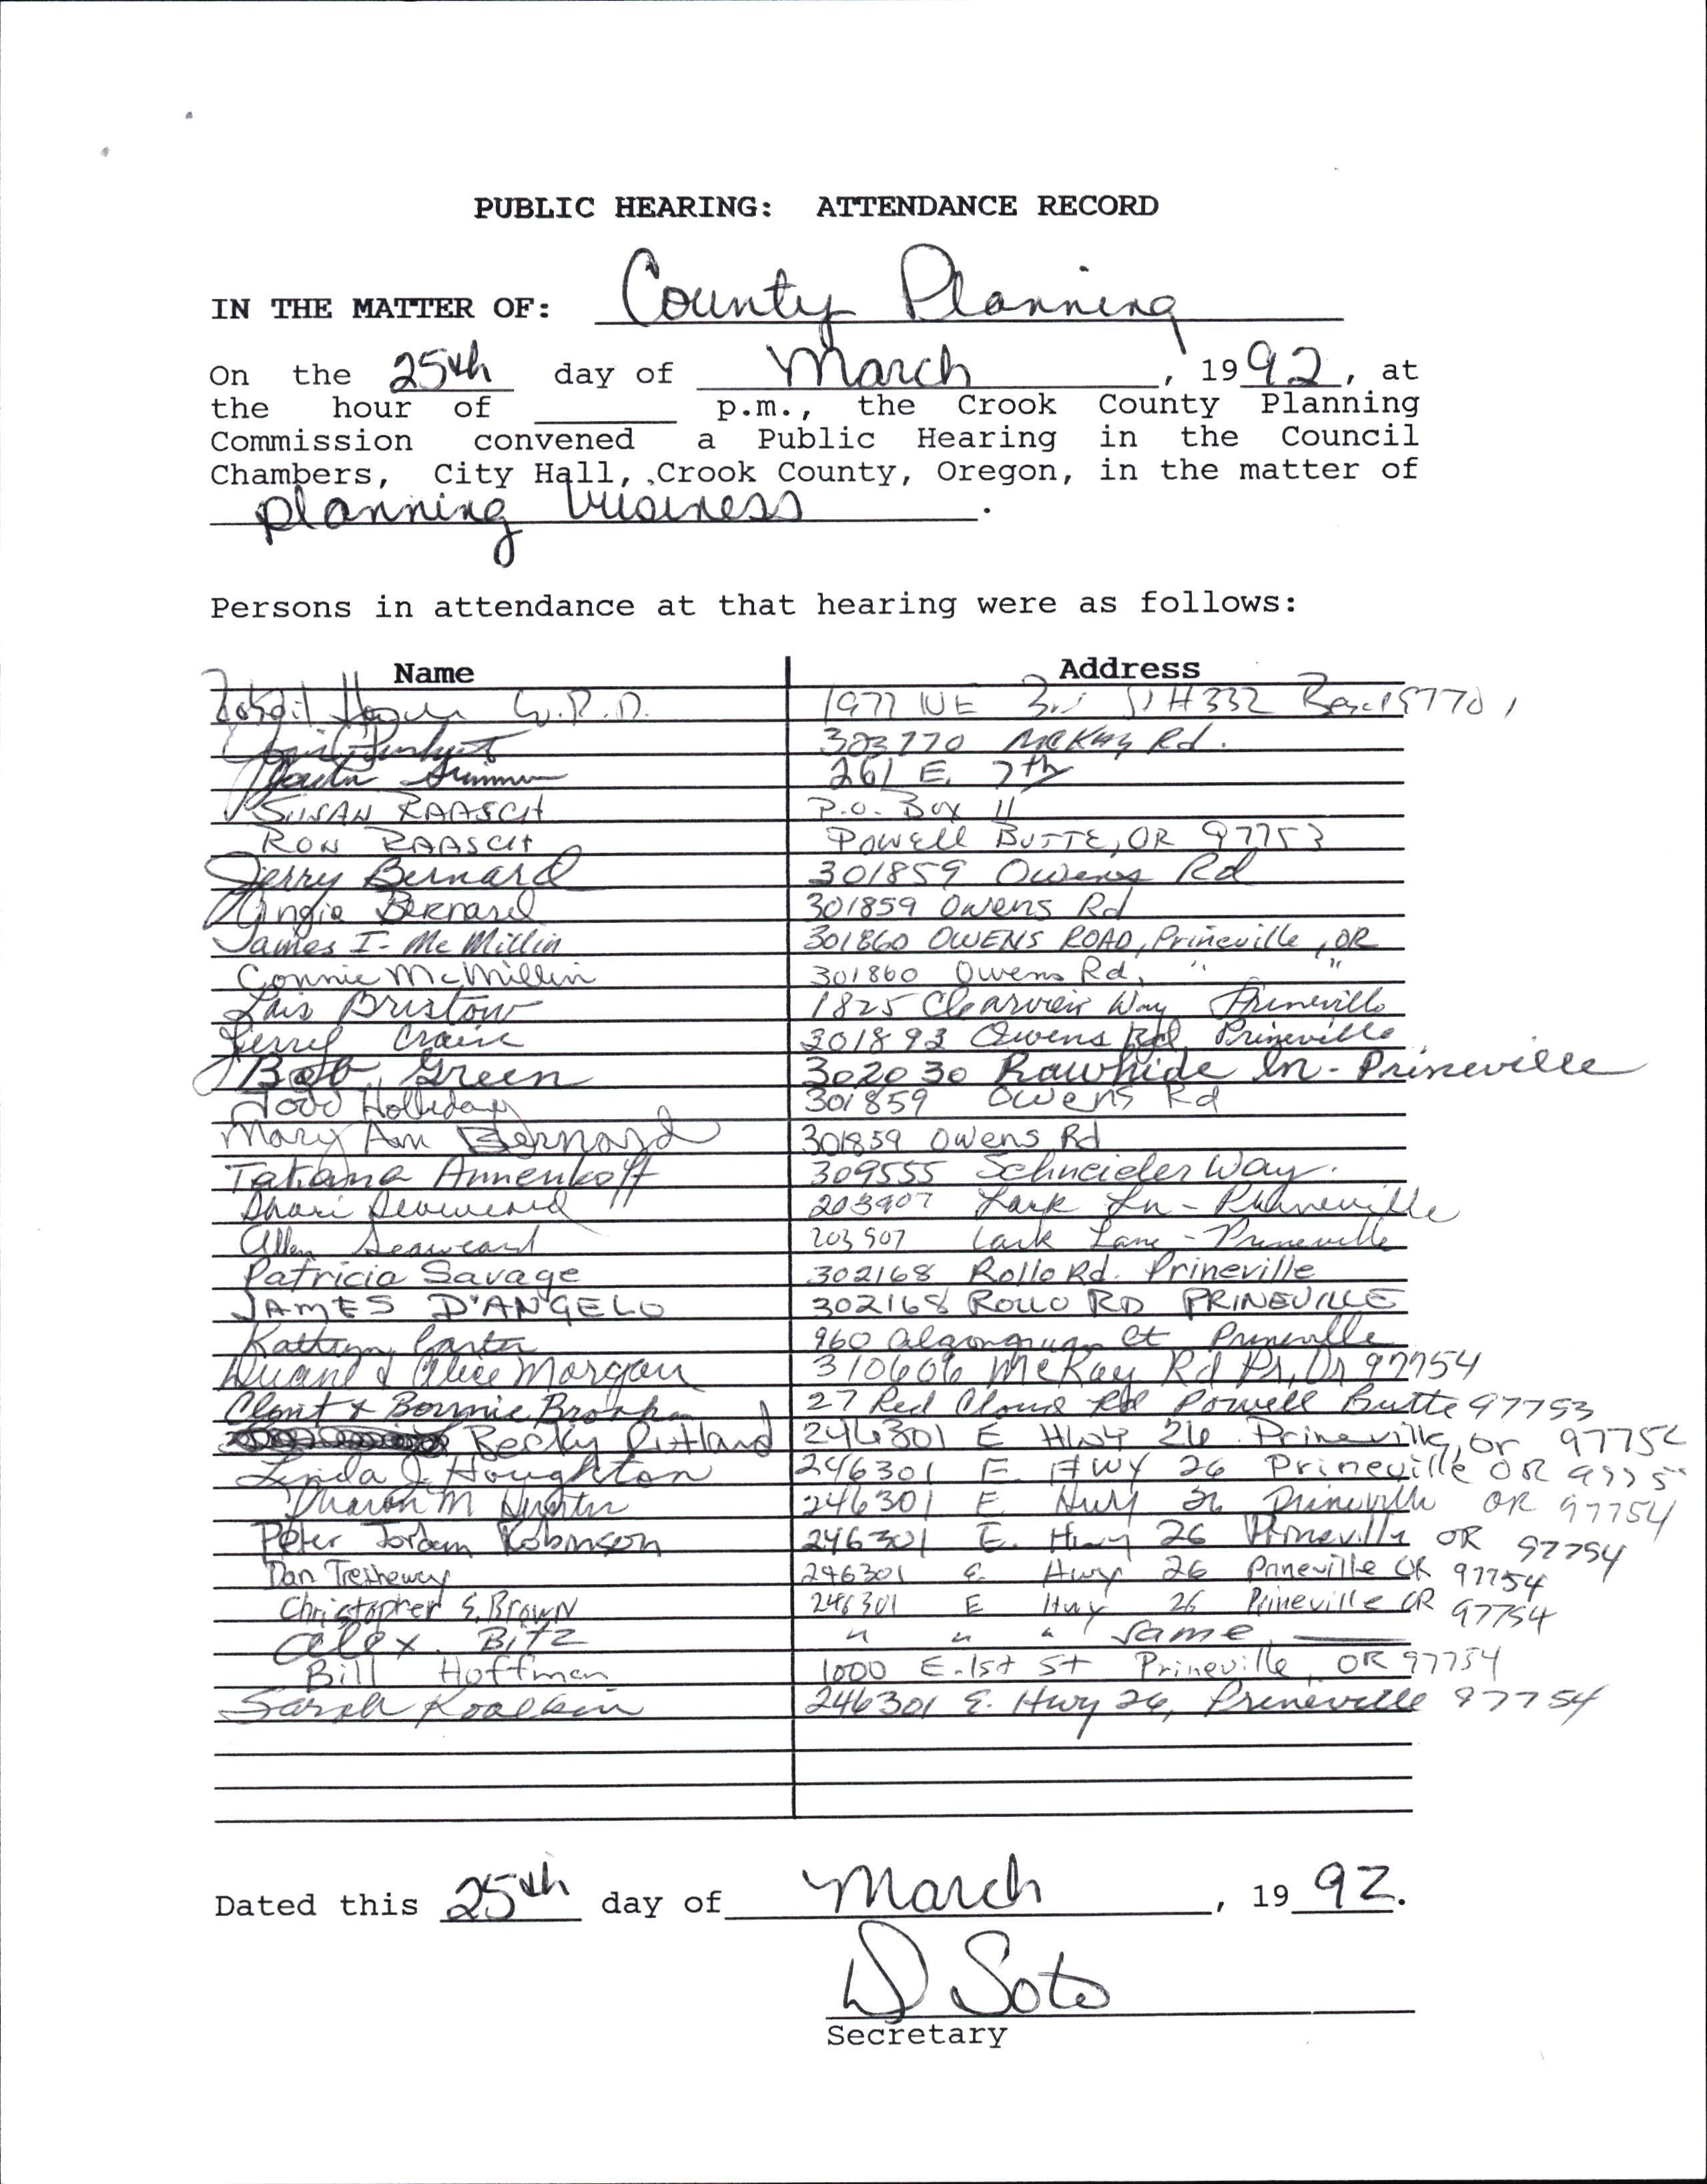 PUBLIC HEARING: ATTENDANCE RECORD
IN THE MATTER OF: County Planning
On the 25th day of March, 1992, at
the hour of ______ p.m., the Crook County Planning
Commission convened a Public Hearing in the Council
Chambers, City Hall, Crook County, Oregon, in the matter of
planning business.
Persons in attendance at that hearing were as follows:
Name Address
1977 NE 3rd St #332 Bend 97701
303770 McKay Rd.
261 E. 7th
SUSAN RAASCH P.O. Box 11
RON RAASCH POWELL BUTTE, OR 97753
Jerry Bernard 301859 Owens Rd
Angie Bernard 301859 Owens Rd
James I. McMillin 301860 OWENS ROAD, Prineville, OR
Connie McMillin 301860 Owens Rd, " "
Lois Bristow 1825 Clearview Way Prineville
Jerry Crain 301893 Owens Rd Prineville
Bob Green 302030 Rawhide Ln - Prineville
Todd Holliday 301859 Owens Rd
Mary Ann Bernard 301859 Owens Rd
Tatiana Annenkoff 309555 Schneider Way.
Shari Seaweard 203907 Lark Ln - Prineville
Allen Seaweard 203907 Lark Lane - Prineville
Patricia Savage 302168 Rollo Rd. Prineville
JAMES D'ANGELO 302168 ROLLO RD PRINEVILLE
Kathryn Carter 960 Algonquan Ct Prineville
Duane & Alice Morgan 310606 McKay Rd Pr, Or 97754
Clint & Bonnie 27 Red Cloud Rd Powell Butte 97753
Becky Ritland 246301 E Hwy 26 Prineville, or 97754
Linda J. Houghton 246301 E. HWY 26 Prineville OR
Sharon M 246301 E. Hwy 26 Prineville OR 97754
Peter Jordan Robinson 246301 E. Hwy 26 Prineville OR 97754
Dan Trethewey 246301 E. Hwy 26 Prineville OR 97754
Christopher S. Brown 246301 E Hwy 26 Prineville OR 97754
Alex Bitz " " " same
Bill Hoffman 1000 E. 1st St Prineville, OR 97754
Sarah 246301 E. Hwy 26, Prineville 97754
Dated this 25th day of March, 1992.
D Soto
Secretary